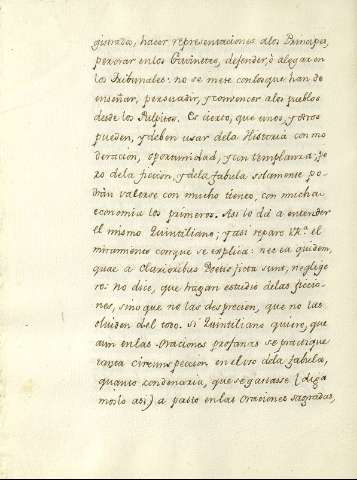 gistrados, hacer representaciones alos Principes,
perorar enlos Gavinetes, defender, ò alegar en
los Tribunales: no se mete conlos que han de
enseñar, persuadir, y convencer alos pueblos
desde los Pulpitos. Es cierto, que unos, y otros
pueden, y deben usar dela Historia con mo
deracion, oportunidad, y con templanza: pe
ro dela ficcion, y dela fabula solamente po-
dràn valerse con mucho tiento, con mucha
economia los primeros. Asi lo dá a entender
el mismo Quintiliano; y asi repare V.R.ª el
miramiento conque se explica: nec ea quidem,
quae a Clarioribus Poetis ficta sunt, neglige
re: no dice, que hagan estudio delas ficcio-
nes, sino que no las desprecien, que no las
olviden del todo. Si Quintiliano quiere, que
aun enlas oraciones profanas se practique
tanta circunspeccion en el uso dela fabula,
quanto condenaria, que se gastasse (diga
moslo asi) a pasto enlas oraciones sagradas,